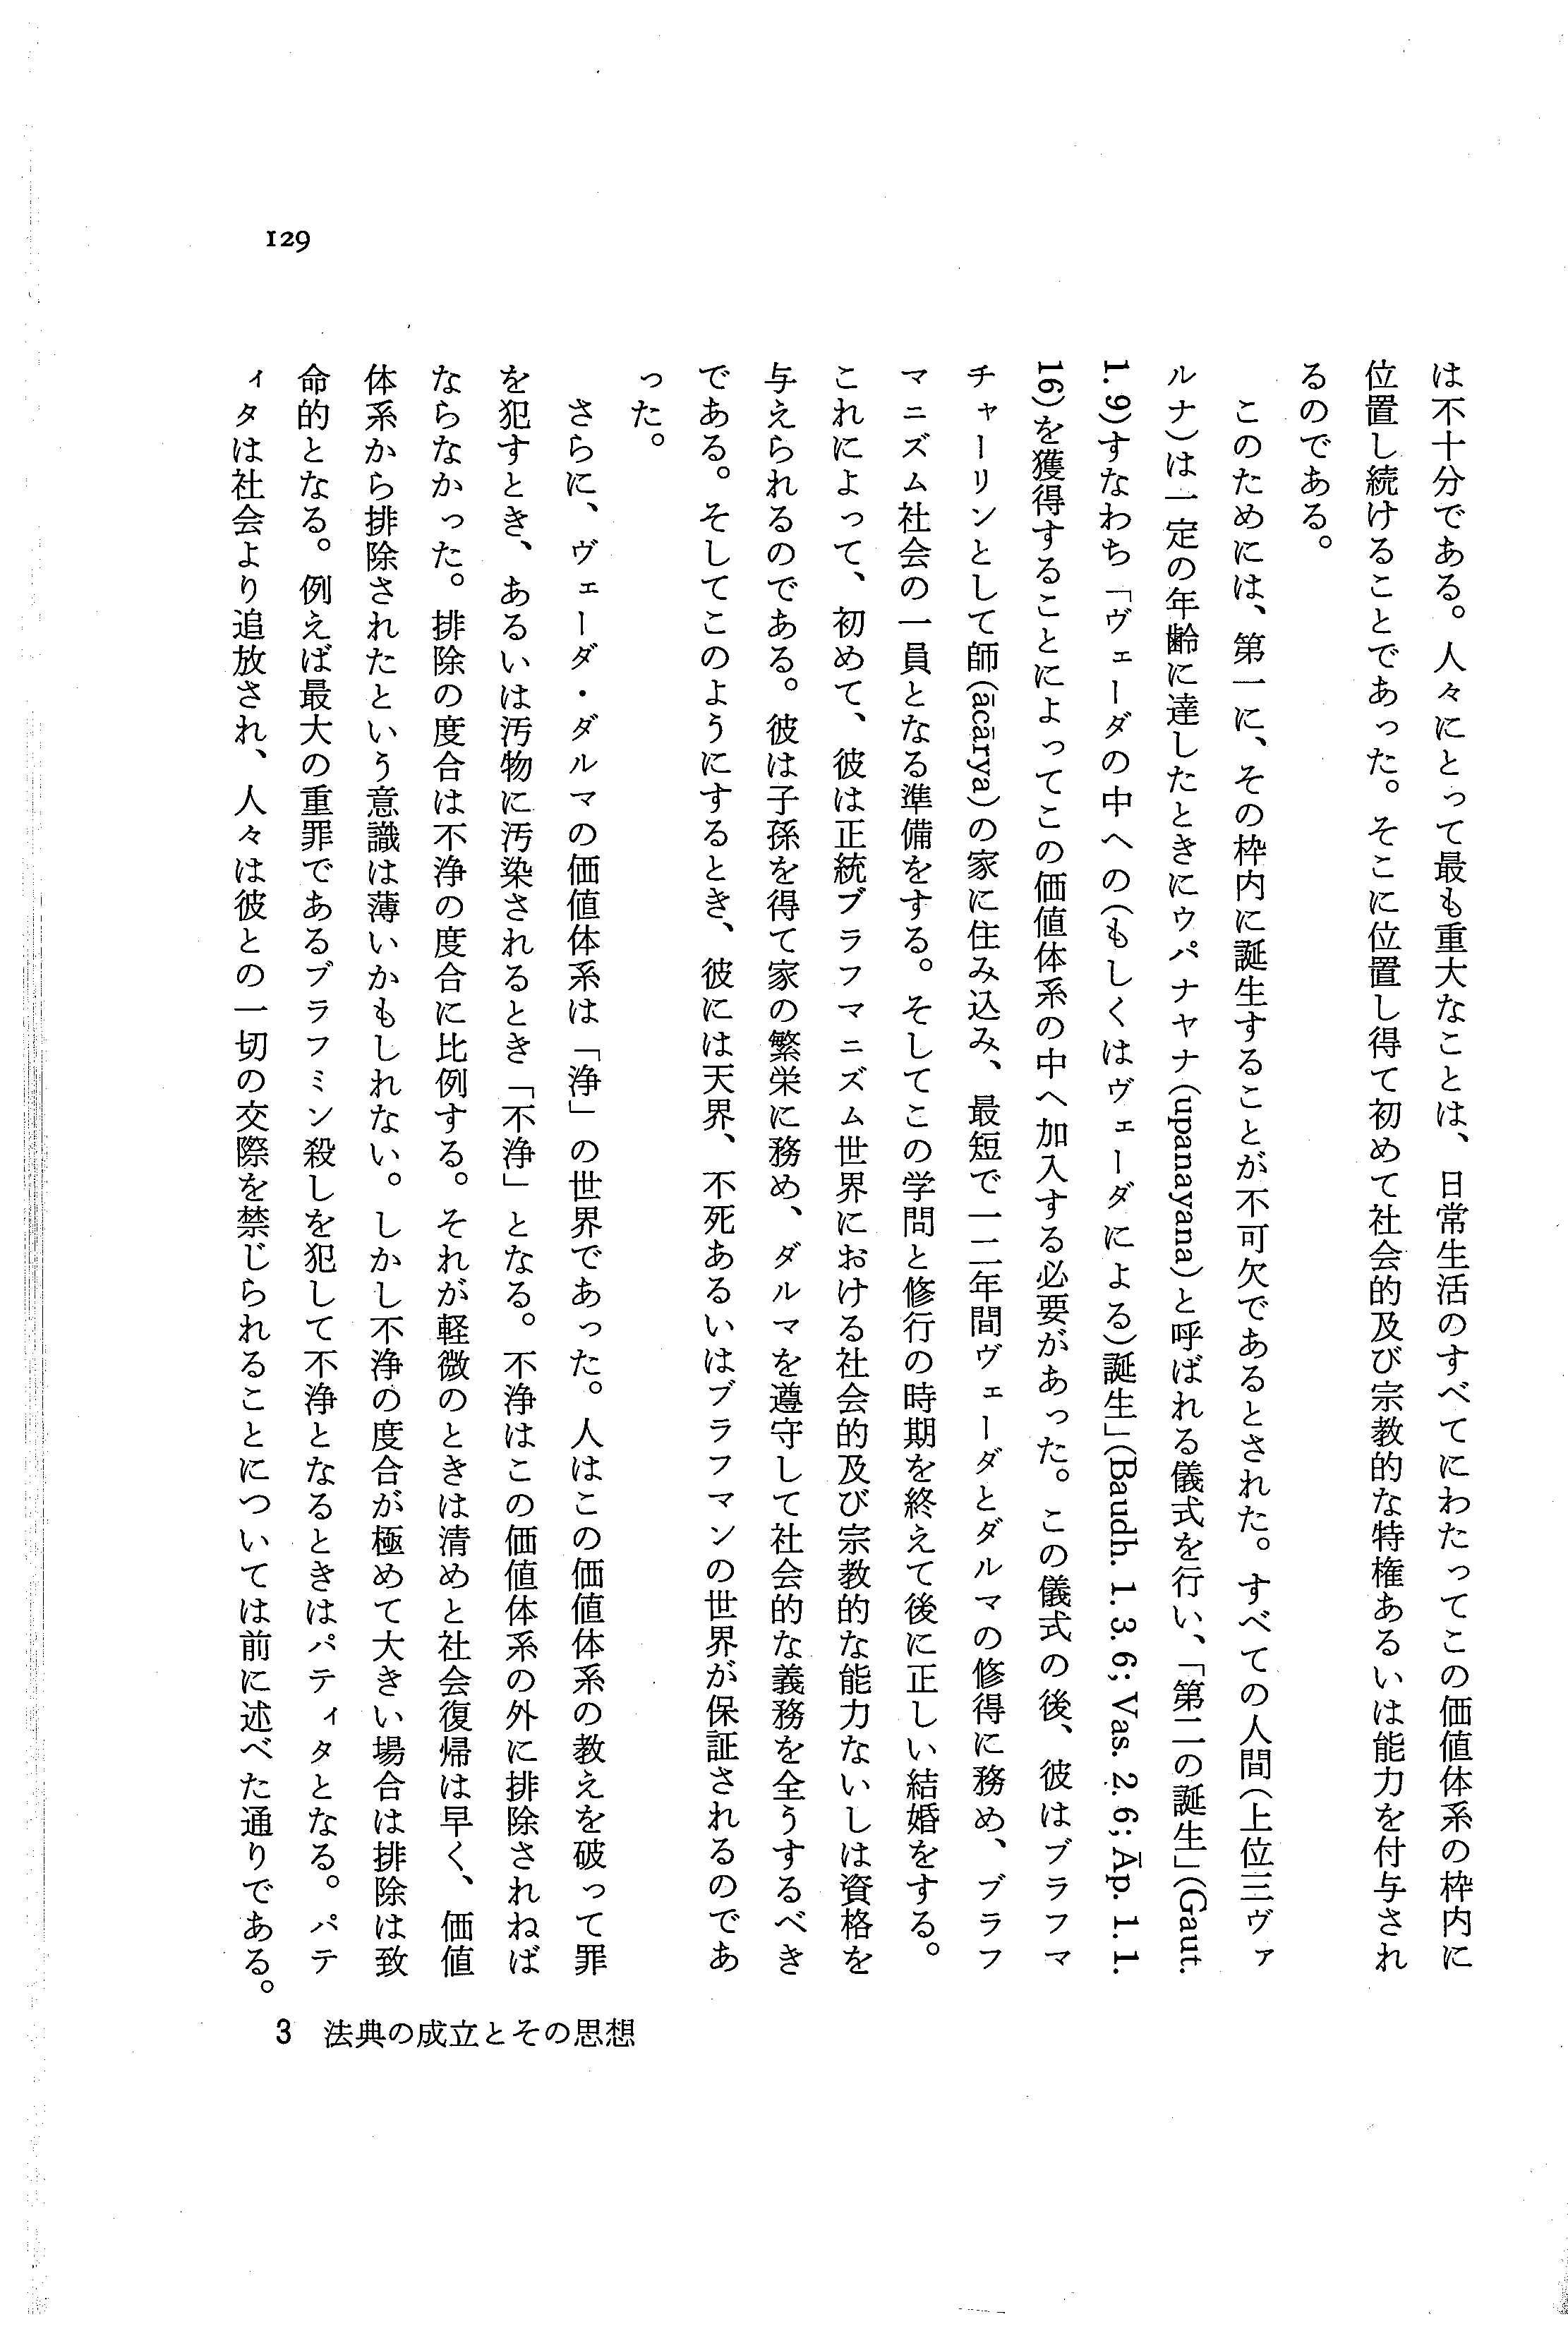 は不十分である。人々にとって最も重大なことは、日常生活のすべてにわたってこの価値体系の枠内に
位置し続けることであった。そこに位置し得て初めて社会的及び宗教的な特権あるいは能力を付与され
るのである。
このためには、第一に、その枠内に誕生することが不可欠であるとされた。すべての人間(上位三ヴァ
ルナ)は一定の年齢に達したときにウパナヤナ(upanayana)と呼ばれる儀式を行い、「第二の誕生」(Gaut.
1. 9)すなわち「ヴェーダの中への(もしくはヴェーダによる)誕生」(Baudh. 1. 3. 6; Vas. 2. 6; Āp. 1. 1.
16)を獲得することによってこの価値体系の中へ加入する必要があった。この儀式の後、彼はブラフマ
チャーリンとして師(ācārya)の家に住み込み、最短で一二年間ヴェーダとダルマの修得に務め、ブラフ
マニズム社会の一員となる準備をする。そしてこの学問と修行の時期を終えて後に正しい結婚をする。
これによって、初めて、彼は正統ブラフマニズム世界における社会的及び宗教的な能力ないしは資格を
与えられるのである。彼は子孫を得て家の繁栄に務め、ダルマを遵守して社会的な義務を全うするべき
である。そしてこのようにするとき、彼には天界、不死あるいはブラフマンの世界が保証されるのであ
った。
さらに、ヴェーダ・ダルマの価値体系は「浄」の世界であった。人はこの価値体系の教えを破って罪
を犯すとき、あるいは汚物に汚染されるとき「不浄」となる。不浄はこの価値体系の外に排除されねば
ならなかった。排除の度合は不浄の度合に比例する。それが軽微のときは清めと社会復帰は早く、価値
体系から排除されたという意識は薄いかもしれない。しかし不浄の度合が極めて大きい場合は排除は致
命的となる。例えば最大の重罪であるブラフミン殺しを犯して不浄となるときはパティタとなる。パテ
ィタは社会より追放され、人々は彼との一切の交際を禁じられることについては前に述べた通りである。
129
3 法典の成立とその思想